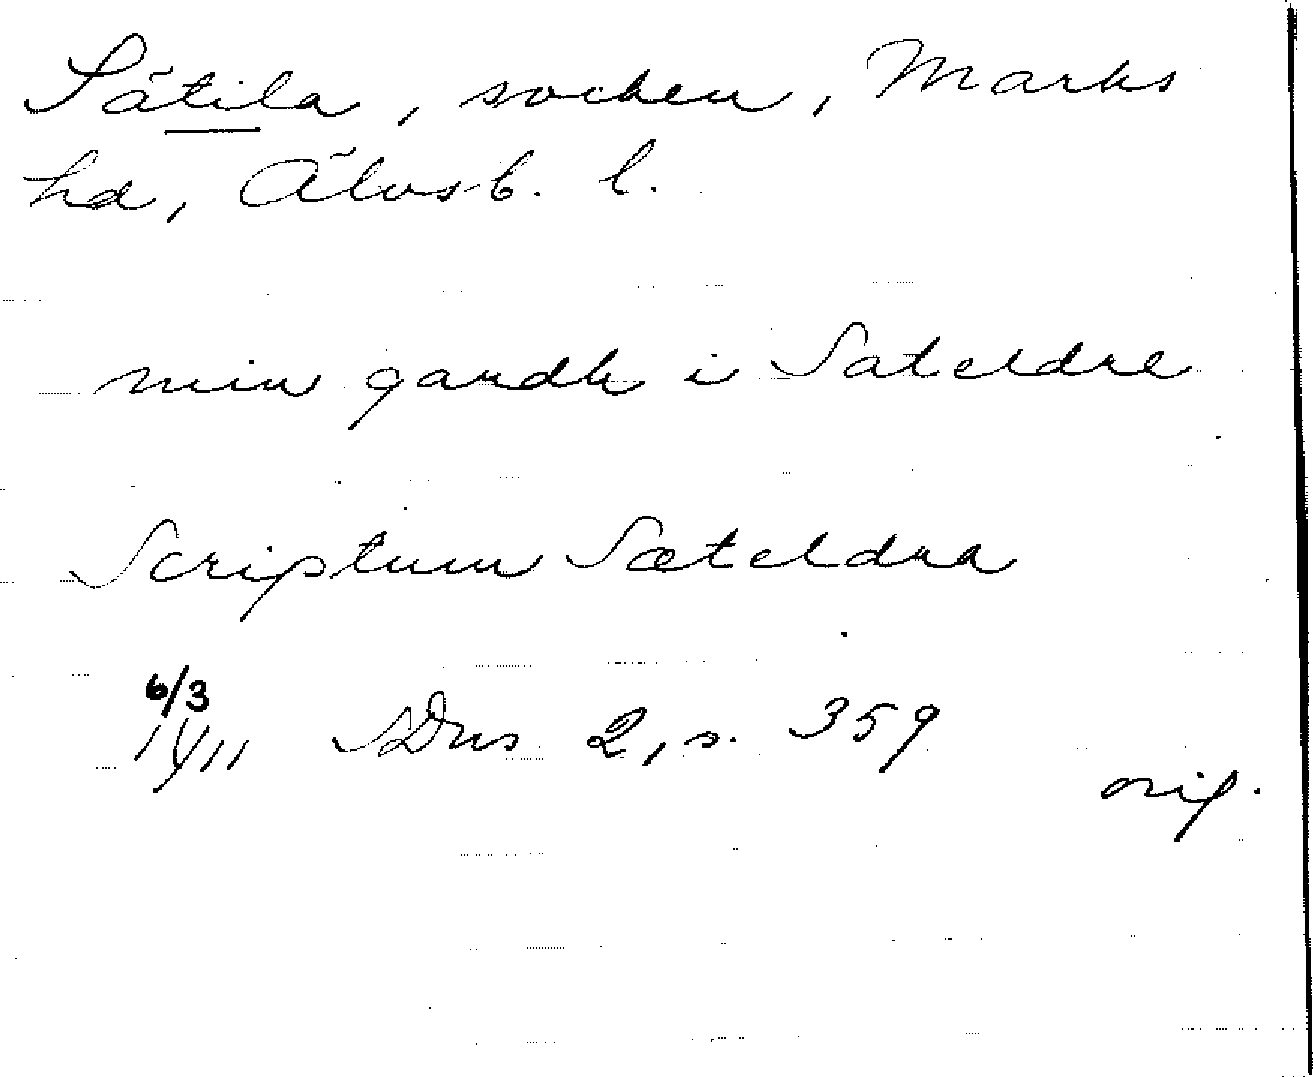 Sätila, socken, Marks
hd, Älvsb. l.
min gardh i Sateldre
Scriptum Sæteldra
6/3
1411 SDns 2, s. 359
orig.